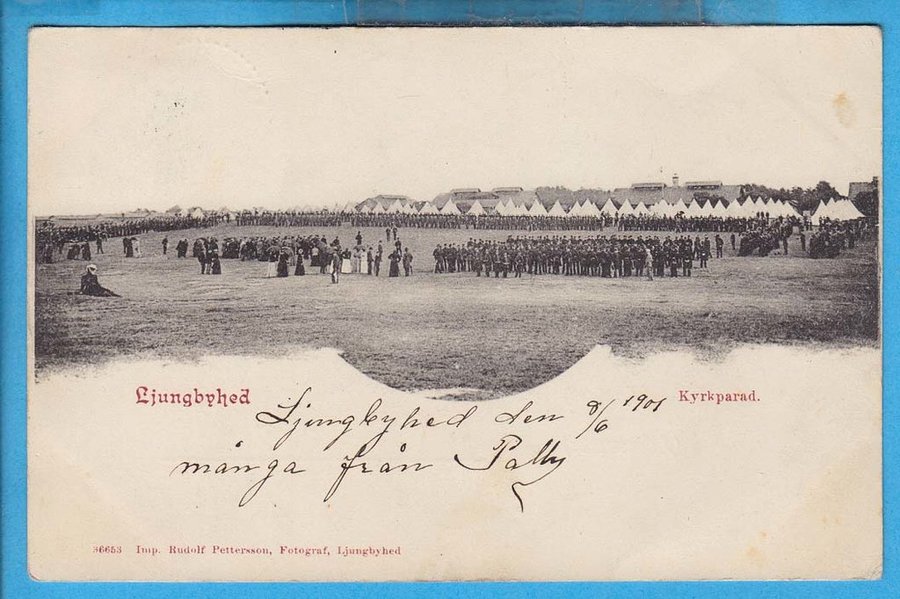 Ljungbyhed
Kyrkparad.
Ljungbyhed den 8/6 1901
många från Pally
36653 Imp. Rudolf Pettersson, Fotograf, Ljungbyhed